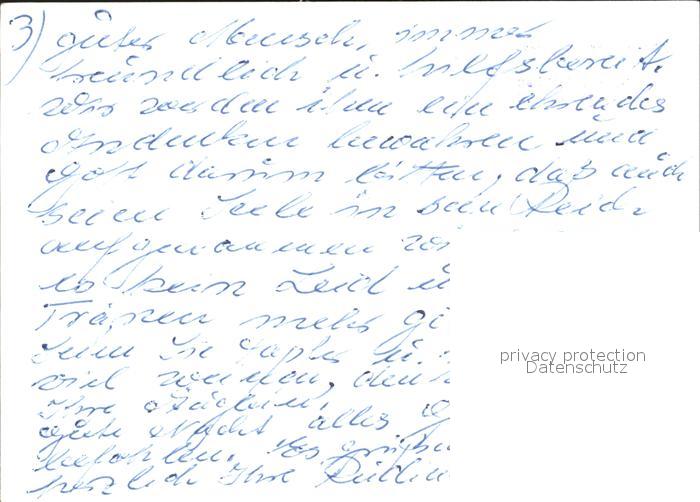 3) guter Mensch, immer
freundlich u. hilfsbereit.
Wir werden ihm ein ehrendes
Andenken bewahren und
Gott darum bitten, daß auch
seine Seele in sein Reich
aufgenommen
wo kein Leid u
Tränen mehr gi
Seien Sie tapfer u.
viel
Ihre
gute Nacht alles
befohlen. Es
herzlich Ihre
privacy protection
Datenschutz